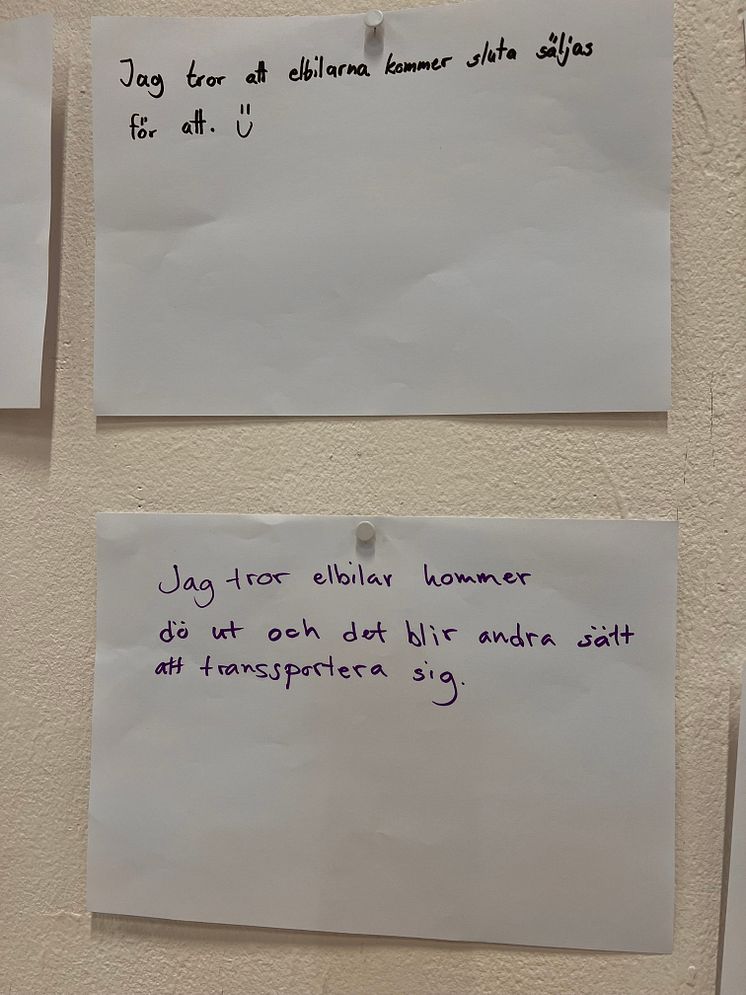 Jag tror att elbilarna kommer sluta säljas
för att. Ü
Jag tror elbilar kommer
dö ut och det blir andra sätt
att transsportera sig.